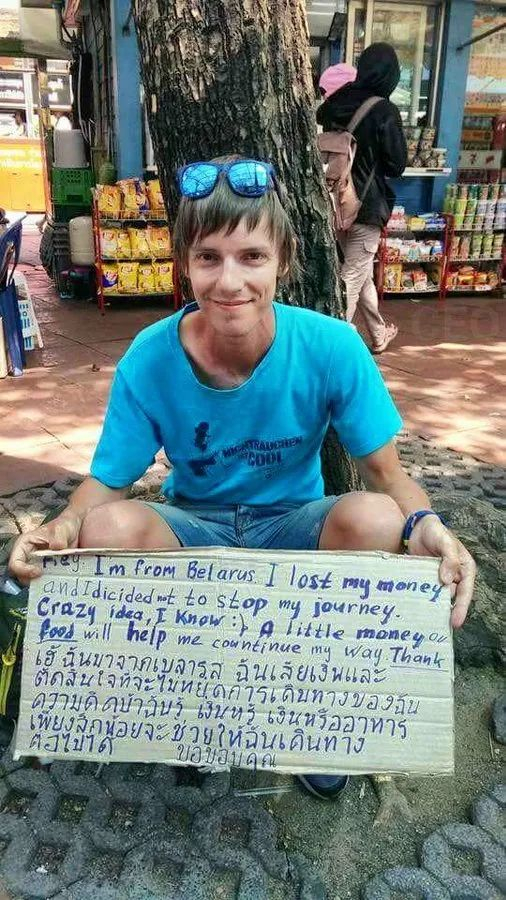 NICHTRAUCHEN
IST COOL
Hey. I'm from Belarus. I lost my money
and I dicided not to stop my journey.
Crazy idea, I know :) A little money or
food will help me countinue my way. Thank
เฮ้ ฉันมาจากเบลารุส ฉันเสียเงินและ
ตัดสินใจที่จะไม่หยุดการเดินทางของฉัน
ความคิดบ้าฉันรู้ เงินหรื เงินหรืออาหาร
เพียงเล็กน้อยจะช่วยให้ฉันเดินทาง
ต่อไปได้ ขอขอบคุณ